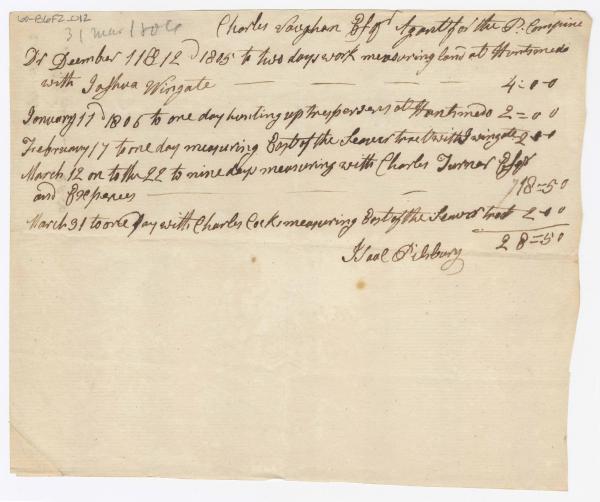 60-B6F2.012
31 mar 1806
Charles Vaughan Esqr Agent for the P. Compine
Dr December 11 & 12d 1805 to two days work measuring land at Huntsmedo
with Joshua Wingate 4=00
January 11d 1806 to one day hunting up trespersers at Huntmedo 2=00
February 17 to one day measuring East of the Seaver tract with J wingate 2=00
March 12 on to the 22 to nine days measuring with Charles Turner Esqr
and Expences 18=50
March 31 to one Day with Charles Cocks measuring East of the Seaver tract 2=00
28=50
Isaac Pilsbury